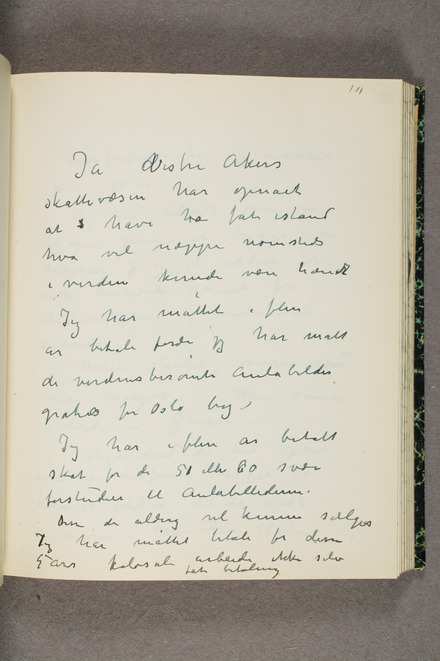 111
Ja Vestre Akers
skattevæsen har opnaaet
at have faat istand
hva vel neppe nonsteds
i verden kunde være hændt
Jeg har måttet i flere
år betale fordi jeg har malt
de verdensberømte Aulabilleder
gratis for Oslo by,
Jeg har i flere år betalt
skat for de 50 eller 60 svære
forstudier til Aulabillederne.
Den de aldrig vil kunne sælges
Jeg har måttet betale for disse
5 års kolosale arbeide ikke selv
fåt betaling